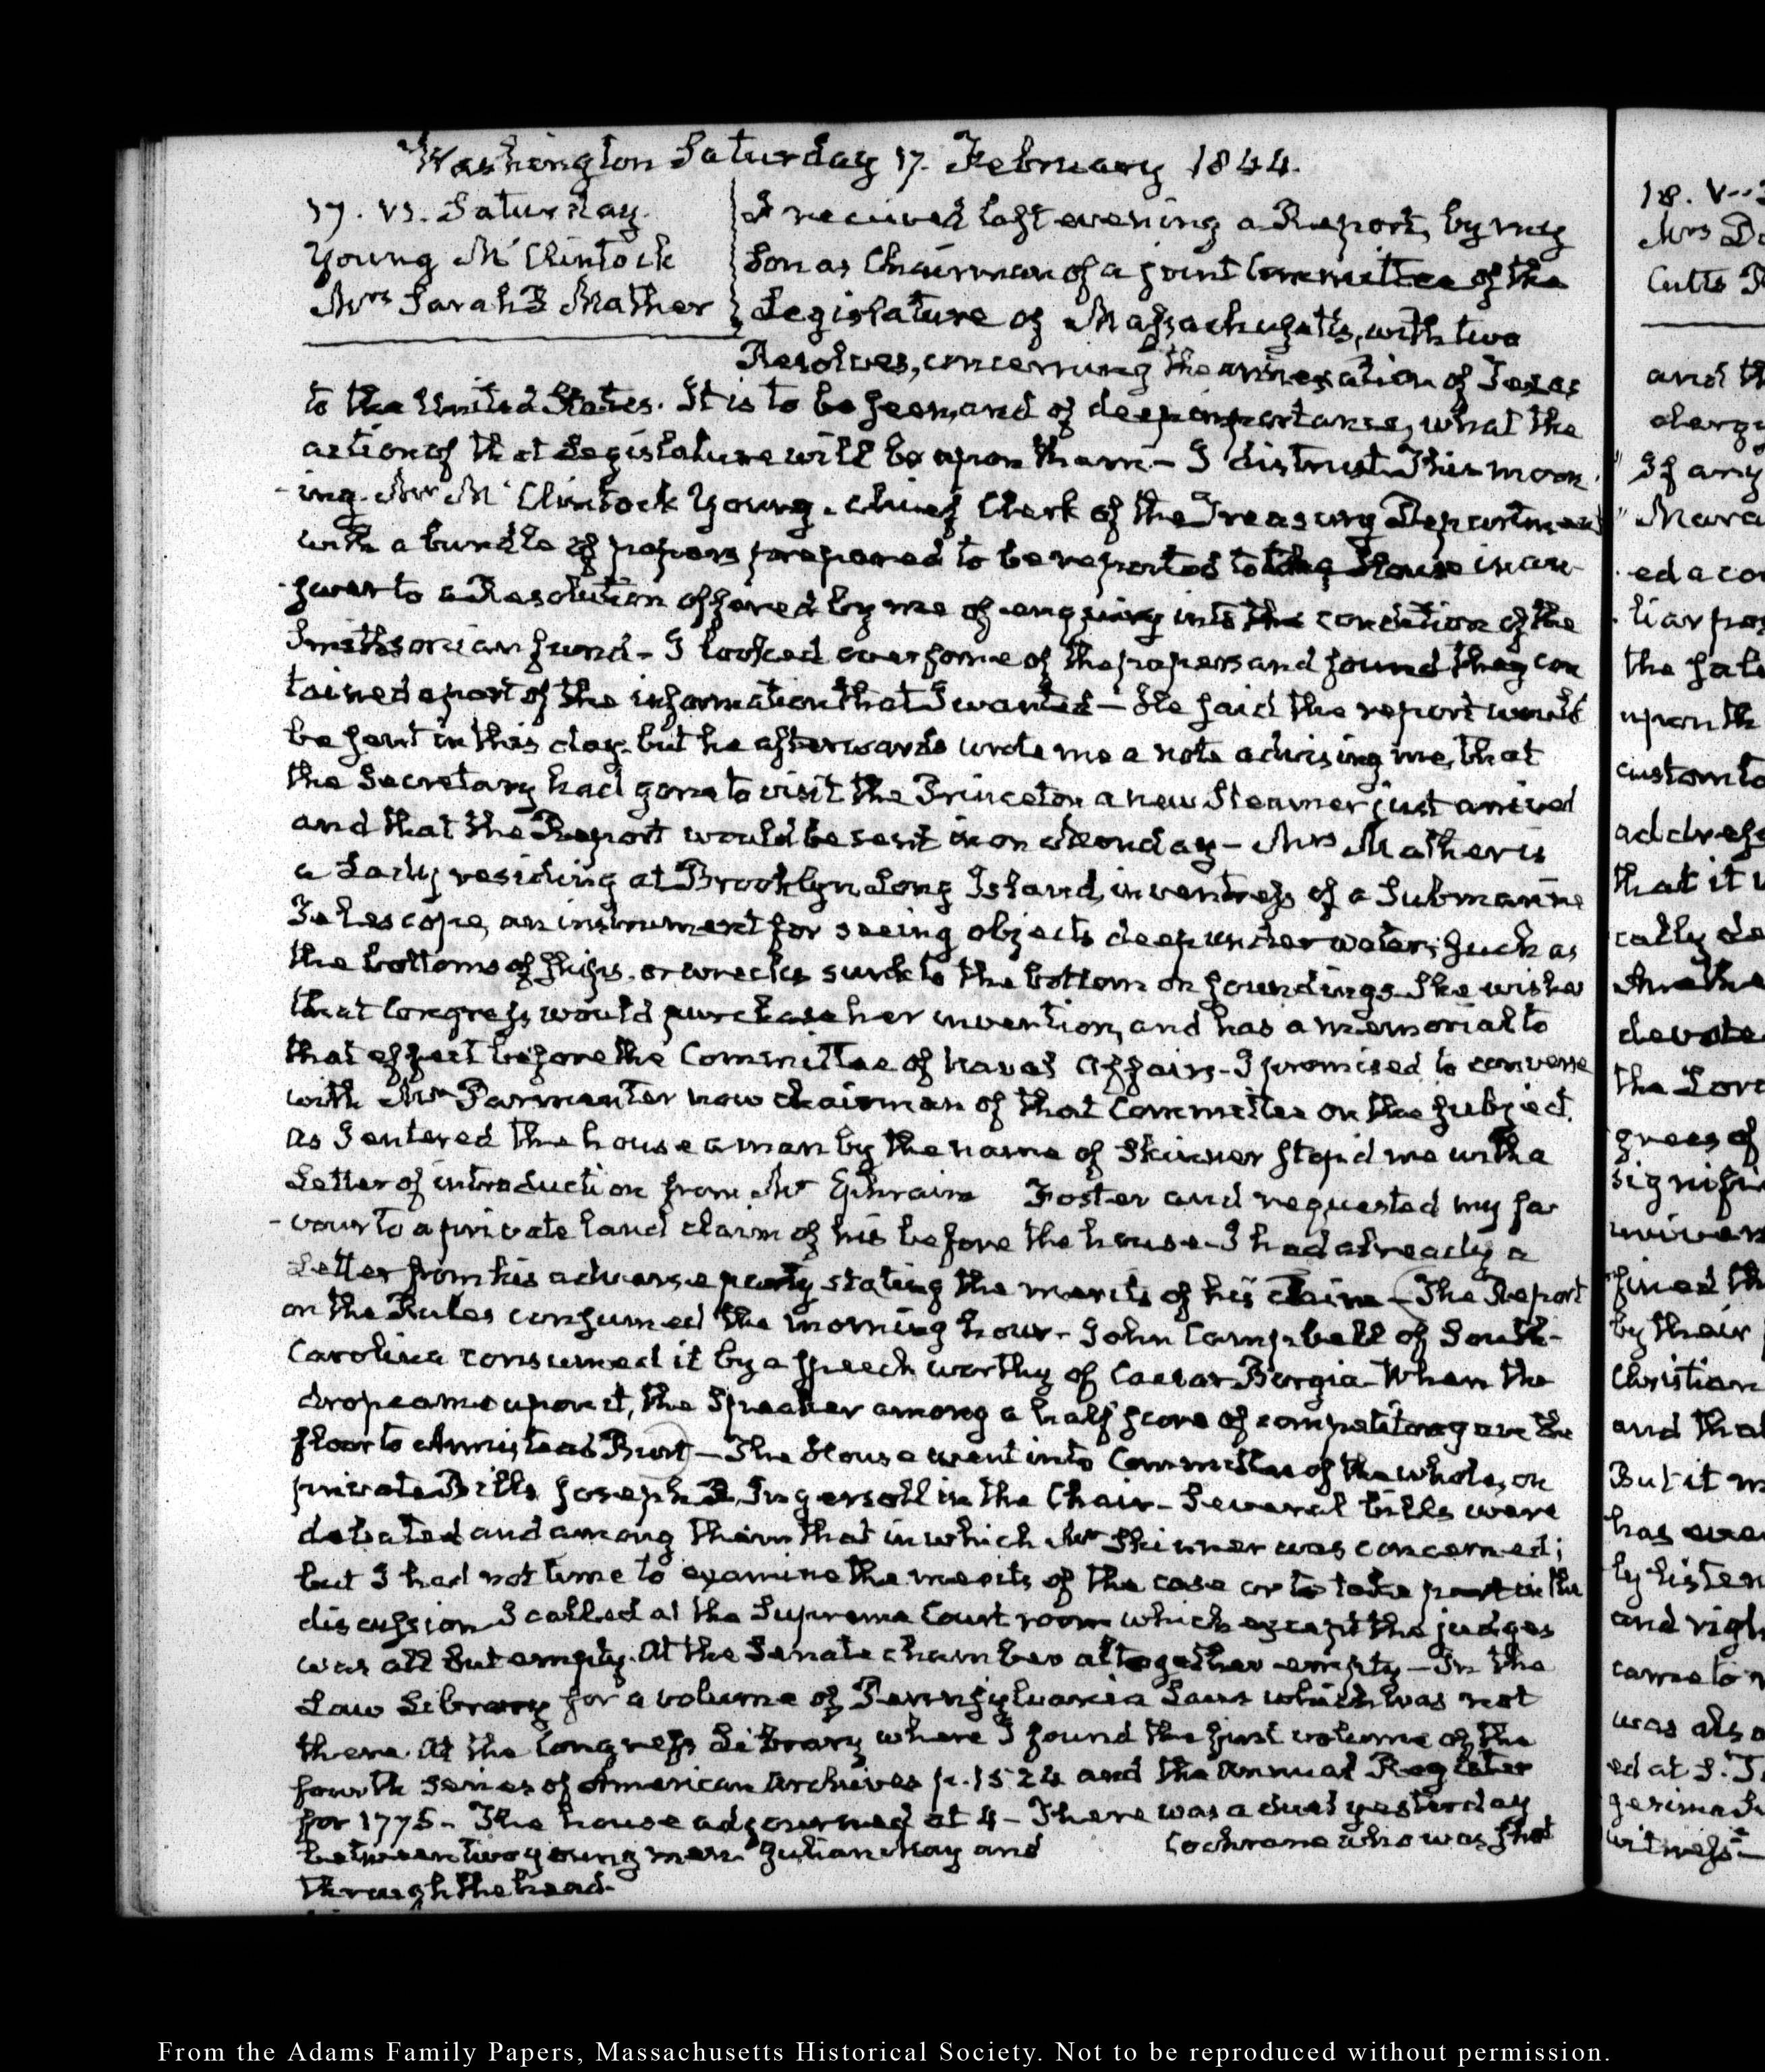 Washington Saturday 17. February 1844.
17. VI. Saturday.
Young McClintock
Mrs Sarah B Mather
I received last evening a Report, by my
Son as Chairman of a joint Committee of the
Legislature of Massachusetts, with two
Resolves, concerning the annexation of Texas
to the United States. It is to be seen, and of deep importance, what the
action of that Legislature will be upon them – I distrust. This morn
-ing. Mr McClintock Young. chief Clerk of the Treasury Department
with a bundle of papers prepared to be reported to the House in an-
-swer to a Resolution offered by me of enquiry into the condition of the
Smithsonian fund – I looked over some of the papers and found they con
tained a part of the information that I wanted – He said the report would
be sent in this day. but he afterwards wrote me a note advising me, that
the Secretary had gone to visit the Princeton a new Steamer just arrived
and that the Report would be sent in on Monday – Mrs Mather is
a Lady residing at Brooklyn Long Island, inventress of a Submarine
Telescope, an instrument for seeing objects deep under water; such as
the bottoms of ships. or wrecks sunk to the bottom on soundings. She wishes
that Congress would purchase her invention, and has a memorial to
that effect before the Committee of naval Affairs – I promised to converse
with Mr Parmenter now chairman of that Committee on the subject.
as I entered the house a man by the name of Skinner stop'd me with a
Letter of introduction from Mr Ephraim Foster and requested my fa
-vour to a private land claim of his before the house – I had already a
Letter from his adverse party stating the merits of his claim – The Report
on the Rules consumed the morning hour – John Campbell of South-
Carolina consumed it by a speech worthy of Caesar Borgia – When the
drop came upon it, the Speaker among a half score of competitors gave the
floor to Armistead Burt – The House went into Committee of the whole, on
private Bills Joseph R. Ingersoll in the Chair – Several bills were
debated and among them that in which Mr Skinner was concerned;
but I had not time to examine the merits of the case or to take part in the
discussion I called at the Supreme Court room which except the judges
was all but empty. At the Senate chamber altogether empty – In the
Law Library for a volume of Pennsylvania Laws which was not
there. At the Congress Library where I found the first volume of the
fourth Series of American Archives p. 1524 and the Annual Register
for 1775 – The house adjourned at 4 – There was a duel yesterday
between two young men Julian May and Cochrane who was shot
through the head.
18. V
Mrs
Cutts
and th
clergy
If any
Mara
ed a co
liar
the
upon th
custom to
address
that it
cally de
devote
the Lord
grees of
signifi
univer
fined th
by their
Christian
and that
But it
has ever
ly listen
and righ
came to
was also
ed at
witness –
From the Adams Family Papers, Massachusetts Historical Society. Not to be reproduced without permission.